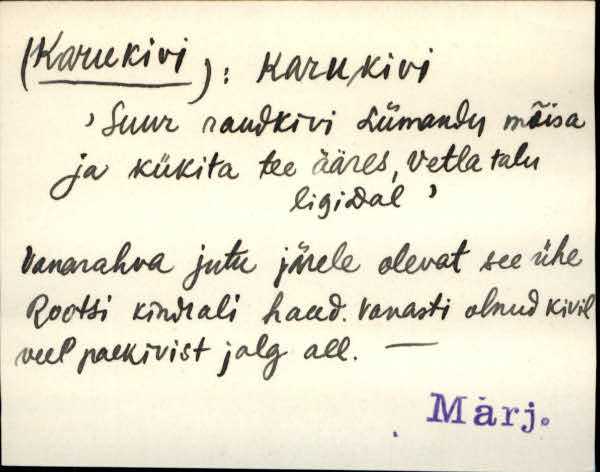 (Karukivi): Karukivi
'Suur raudkivi Sümandu mõisa
ja kükita tee ääres, Vetla talu
ligidal'
Vanarahva jutu järele olevat see ühe
Rootsi kindrali haud. Vanasti olnud kivil
veel paekivist jalg all. —
Märj.